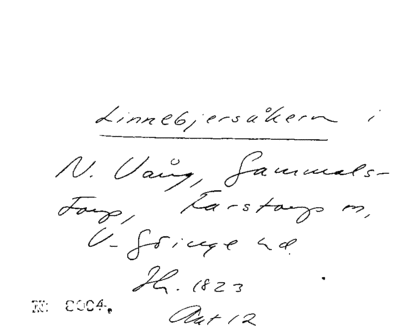 Linnebjersåkern i
N. Vång, Gammals-
torp, Farstorps sn,
V. Göinge hd.
Jh. 1823
Akt 12
№ 8004.